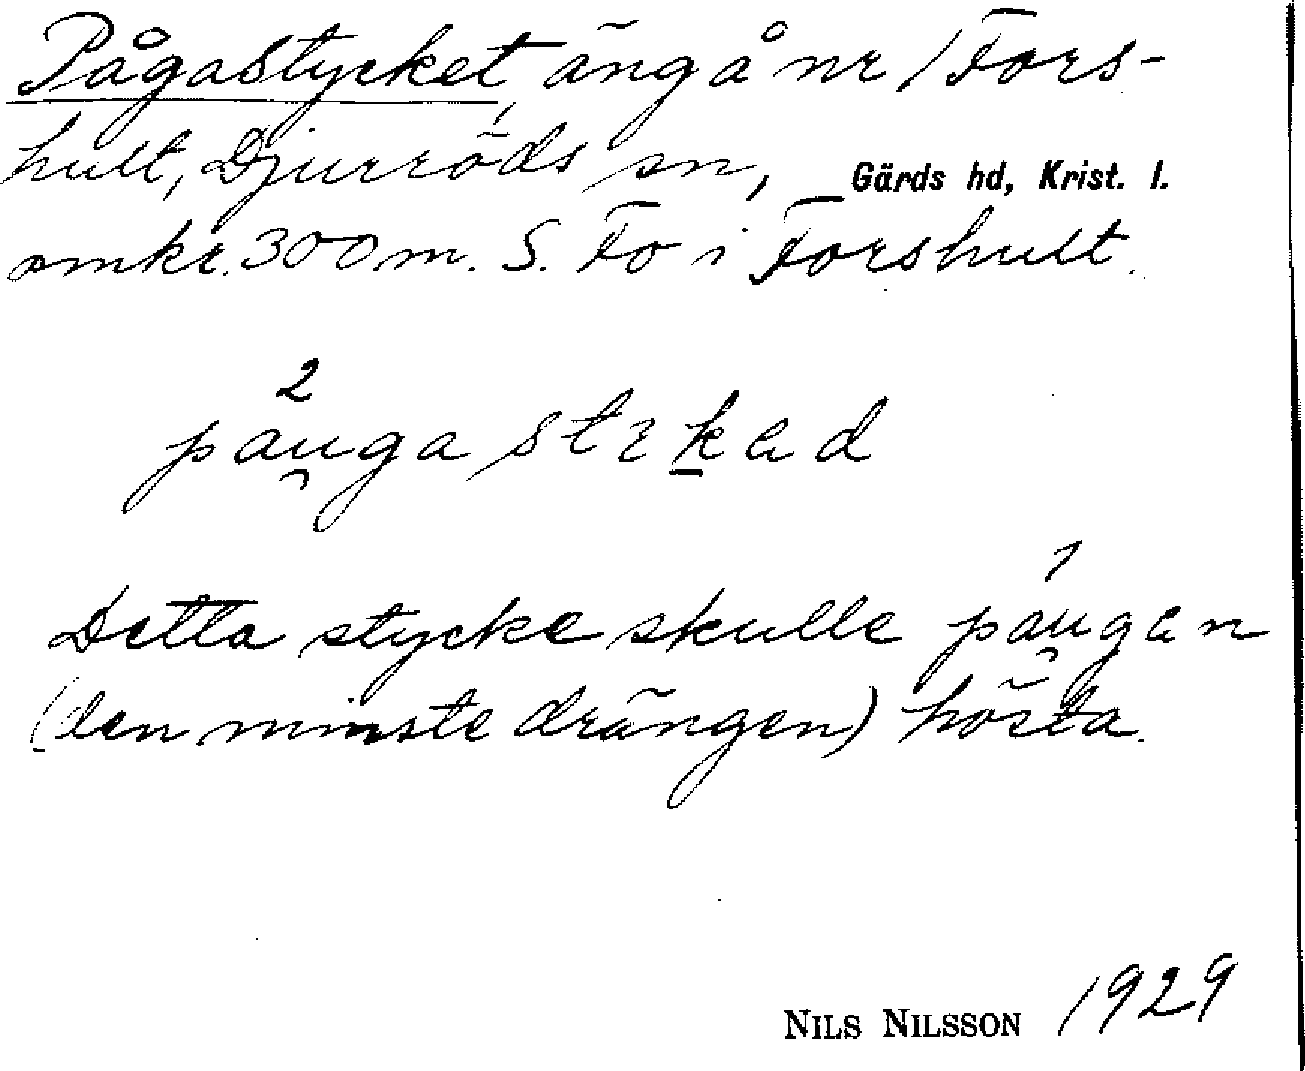 Pågastycket, äng å nr 1 Fors-
hult, Djurröds sn, Gärds hd, Krist. l.
omkr. 300 m. S. Fo i Forshult.
2
pau̯ga stɩkad
1
Detta stycke skulle pau̯gen
(den minste drängen) hösta.
NILS NILSSON 1929